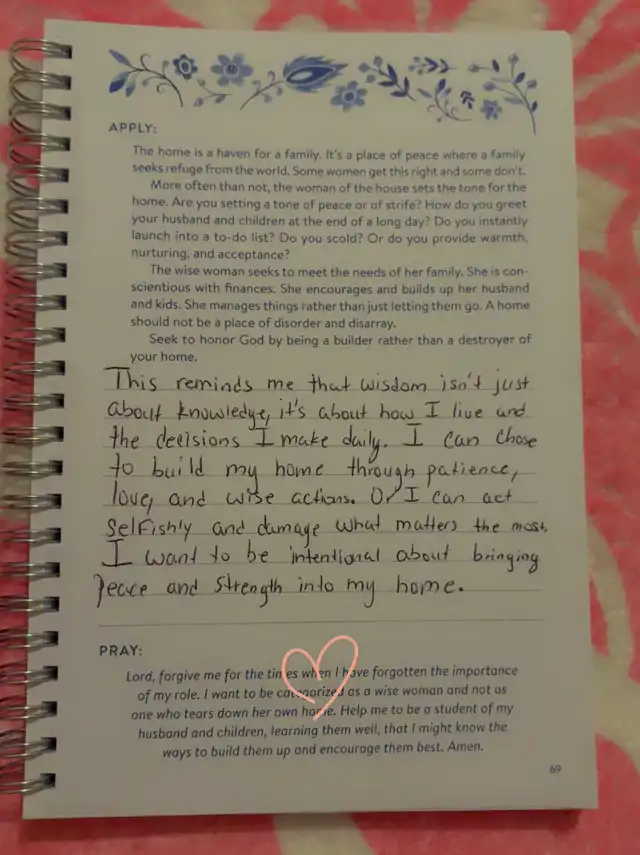 APPLY:
The home is a haven for a family. It's a place of peace where a family
seeks refuge from the world. Some women get this right and some don't.
More often than not, the woman of the house sets the tone for the
home. Are you setting a tone of peace or of strife? How do you greet
your husband and children at the end of a long day? Do you instantly
launch into a to-do list? Do you scold? Or do you provide warmth,
nurturing, and acceptance?
The wise woman seeks to meet the needs of her family. She is con-
scientious with finances. She encourages and builds up her husband
and kids. She manages things rather than just letting them go. A home
should not be a place of disorder and disarray.
Seek to honor God by being a builder rather than a destroyer of
your home.
This reminds me that wisdom isn't just
about knowledge, it's about how I live and
the decisions I make daily. I can chose
to build my home through patience,
love, and wise actions. Or I can act
selfishly and damage what matters the most.
I want to be intentional about bringing
peace and strength into my home.
PRAY:
Lord, forgive me for the times when I have forgotten the importance
of my role. I want to be categorized as a wise woman and not as
one who tears down her own home. Help me to be a student of my
husband and children, learning them well, that I might know the
ways to build them up and encourage them best. Amen.
69